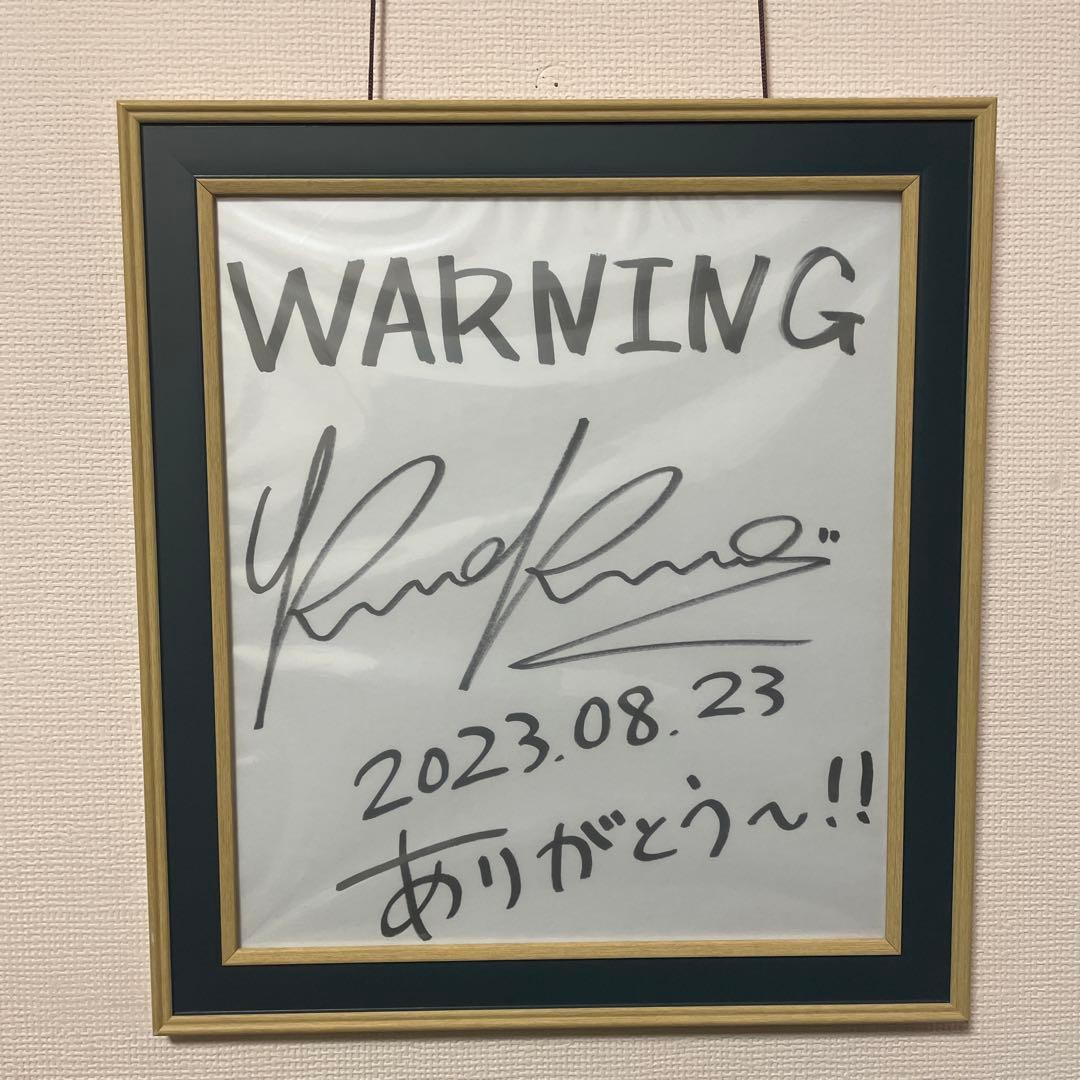 WARNING
2023.08.23
ありがとう〜!!